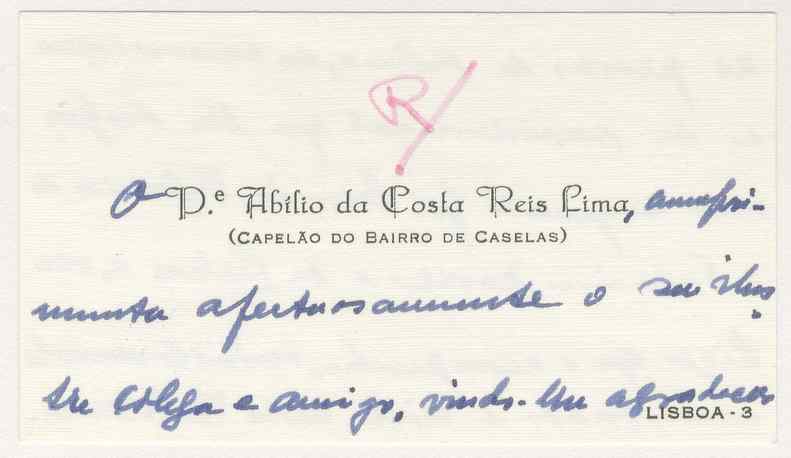 R/
O P.e Abílio da Costa Reis Lima, cumpri-
(CAPELÃO DO BAIRRO DE CASELAS)
menta afectuosamente o seu ilus-
tre colega e amigo, vindo-lhe agradecer
LISBOA - 3